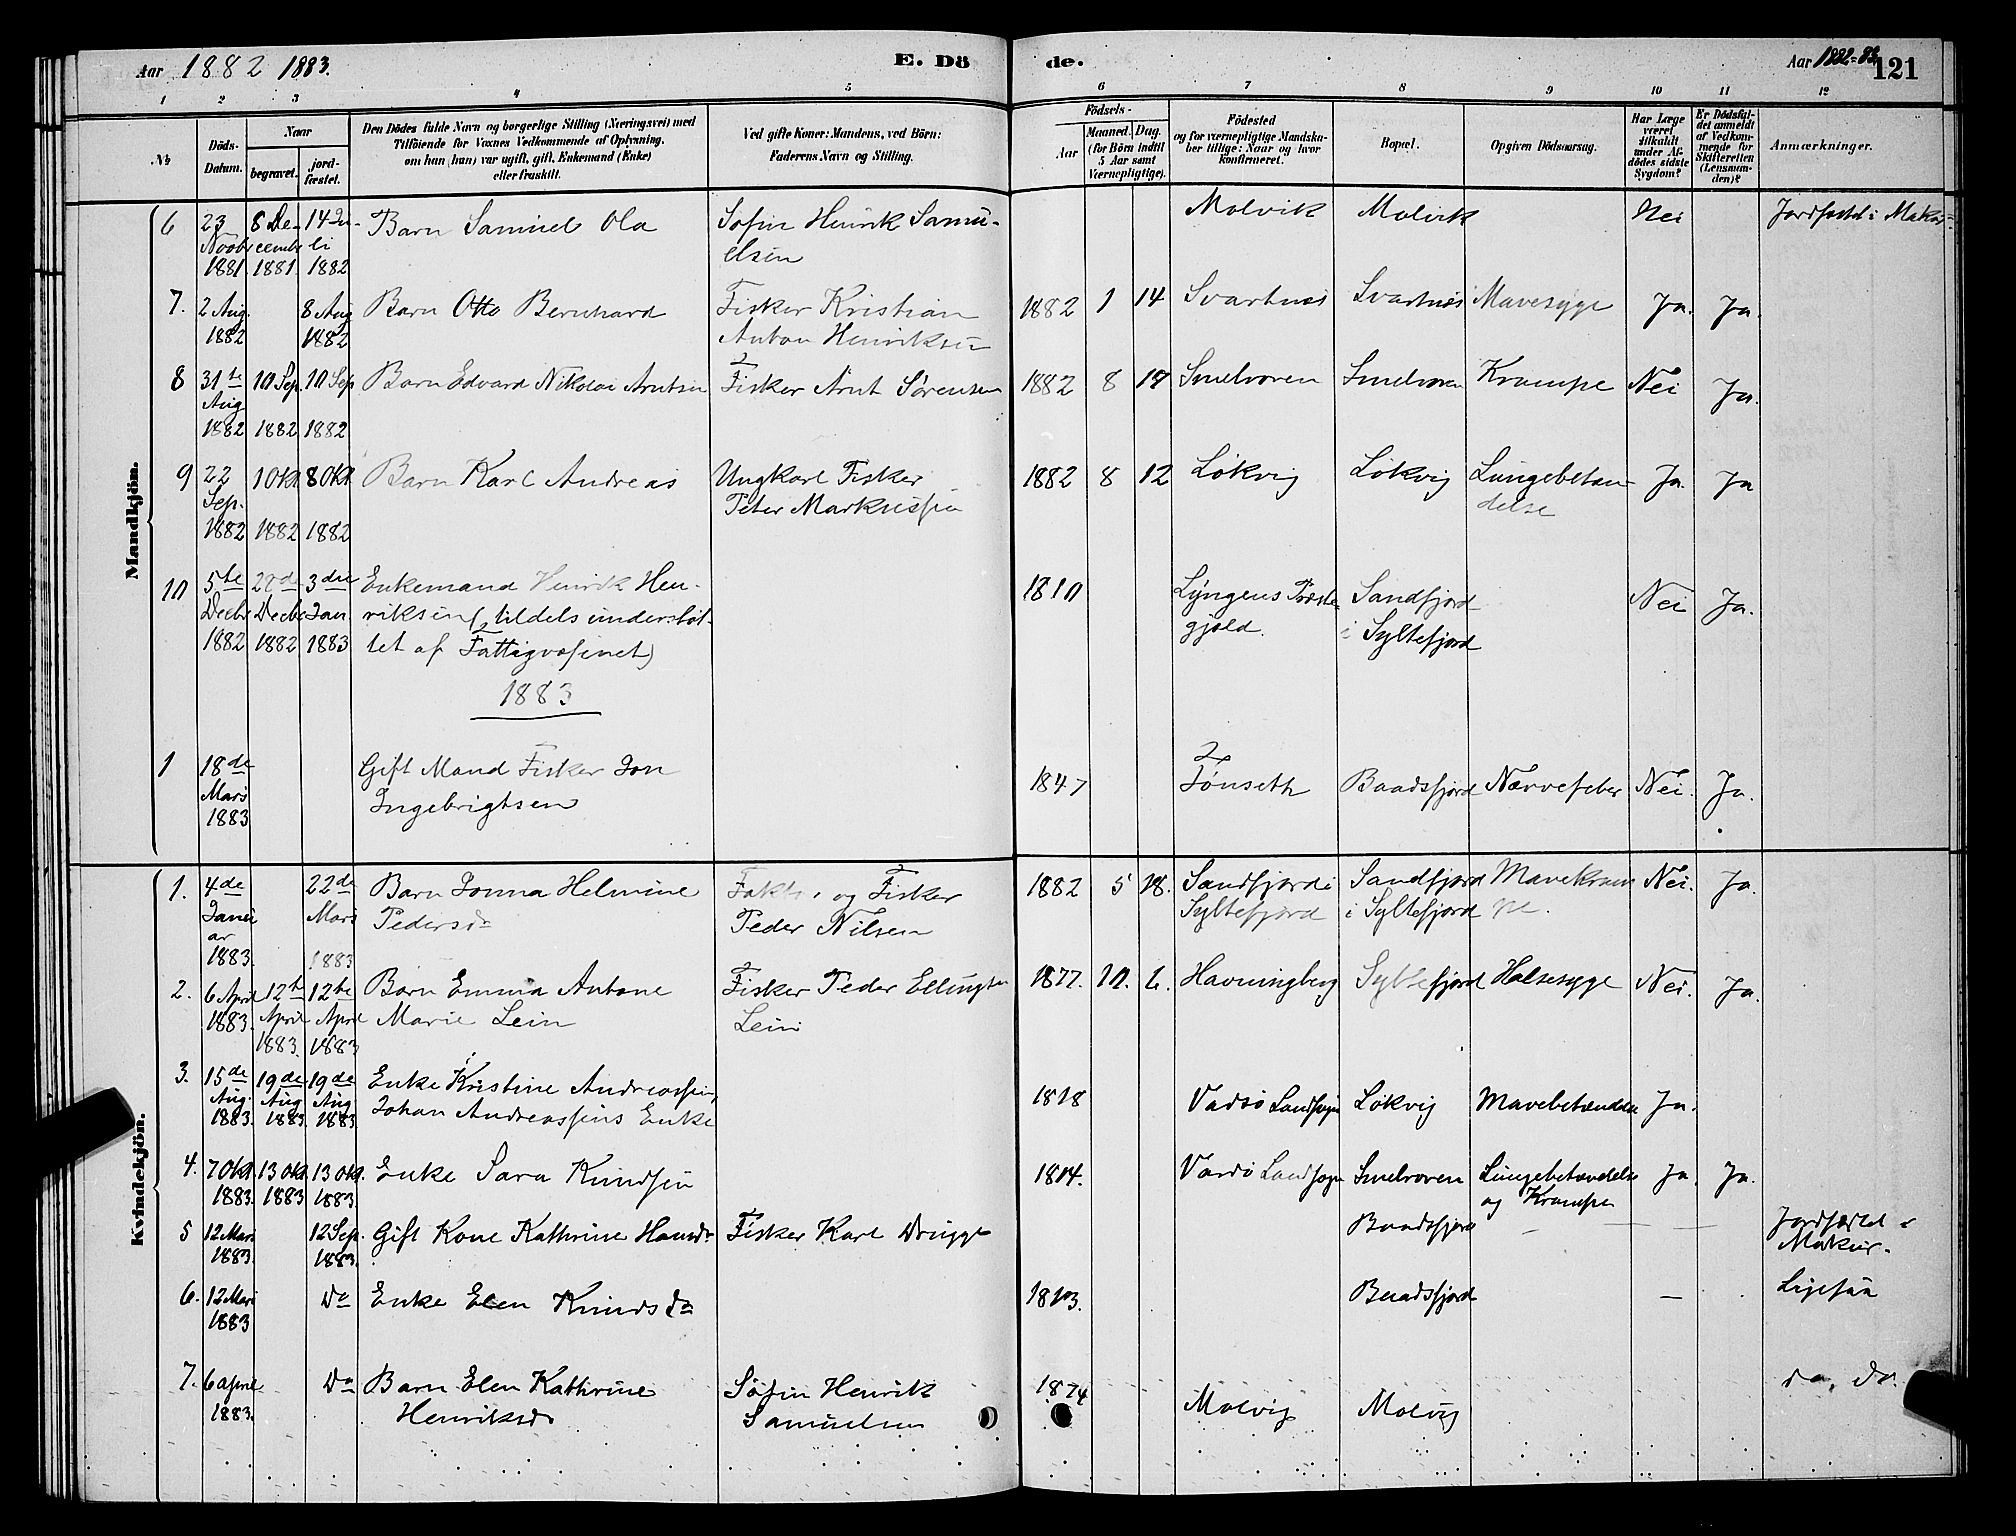 Aar 1882 1883.
E. Dö
de.
Aar 1882-83
121
1 2 3 4 5 6 7 8 9 10 11 12
No
Döds-
Datum.
Naar
begravet.
jord-
fæstet.
Den Dödes fulde Navn og borgerlige Stilling (Næringsvei) med
Tilföiende for Voxnes Vedkommende af Oplysning,
om han (hun) var ugift, gift, Enkemand (Enke)
eller fraskilt.
Ved gifte Koner: Mandens, ved Börn:
Faderens Navn og Stilling.
Födsels-
Aar
Maaned. Dag.
(for Börn indtil
5 Aar samt
Værnepligtige).
Födested
og for værnepligtige Mandska-
ber tillige: Naar og hvor
konfirmeret.
Bopæl.
Opgiven Dödsaarsag.
Har Læge
været
tilkaldt
under Af-
dödes sidste
Sygdom?
Er Dödsfal-
det anmeldt
af Vedkom-
mende for
Skifteretten
(Lensman-
den)?
Anmærkninger.
Mandkjön.
6 23 Novbr 1881. 8 December 1881. 14 Juli 1882 Barn Samuel Ola Søfin Henrik Samuelsen Molvik Molvik Nei Jordfæstet i Makur
7. 2 Aug. 1882 8 Aug 1882 Barn Otto Bernhard Fisker Kristian Anton Henriksen 1882 1 14 Svartnes Svartnes Mavesyge Ja. Ja.
8 31te Aug 1882 10 Sep. 1882 10 Sep 1882 Barn Edvard Nikolai Arntsen Fisker Arnt Sørensen 1882 8 Smelroren Smelroren Krampe Nei Ja.
9 22 Sep. 1882 1 Okt 1882 8 Okt 1882 Barn Karl Andreas Ungkarl Fisker Peter Markussen 1882 8 12 Løkvig Løkvig Lungebetændelse Ja. Ja
10 5te Decbr 1882 28de Decbr 1882 3die Jan 1883 Enkemand Henrik Henriksen (tildels understøttet af Fattigvæsenet) 1810 Lyngens Præstegjæld. Sandfjord i Syltefjord Nei Ja.
1883
1 18de Mars 1883 Gift Mand Fisker Jon Ingebrigtsen 1847 Tønseth Baadsfjord Nervefeber Nei. Ja.
Kvindekjön.
1. 4de Januar 1883. 22de Mars 1883 Barn Jonna Helmine Pedersdr og Fisker Peder Nilsen 1882 5 18. Sandfjord i Syltefjord Sandfjord i Syltefjord Mavekrampe. Nei. Ja.
2. 6 April 1883. 12te April 1883. 12te April 1883 Barn Emma Antone Marie Lein Fisker Peder Ellingsen Lein 1877. 10. 6. Havningberg Syltefjord Halsesyge Nei. Ja.
3. 15de Aug. 1883. 19de Aug 1883. 19de Aug 1883 Enke Kristine Andreassen, Johan Andreassens Enke 1818 Vadsö Landsogn Løkvig Mavebetændelse Ja.
4. 7 Okt. 1883. 13 Okt. 1883 13 Okt. 1883. Enke Sara Knudsen 1804. Vardö Landsogn Smelroren Lungebetændelse og Krampe Ja. Ja.
5 12 Mars 1883. 12 Sep. 1883. Gift Kone Kathrine Hansdr Fisker Karl Baadsfjord — — — Jordfæstet i Makur.
6. 12 Mars 1883 Do Enke Elen Knudsdr 1803. Baadsfjord — Ligesaa
7. 6 April 1883. Do Barn Elen Kathrine Henriksdr Søfin Henrik Samuelsen 1874 Molvig Molvig do. do.